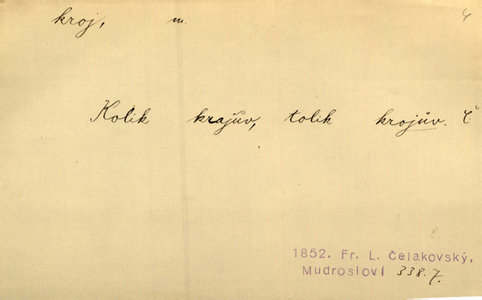 kroj, m.
Kolik krajův, tolik krojův. Č
1852. Fr. L. Čelakovský,
Mudrosloví 338.7.